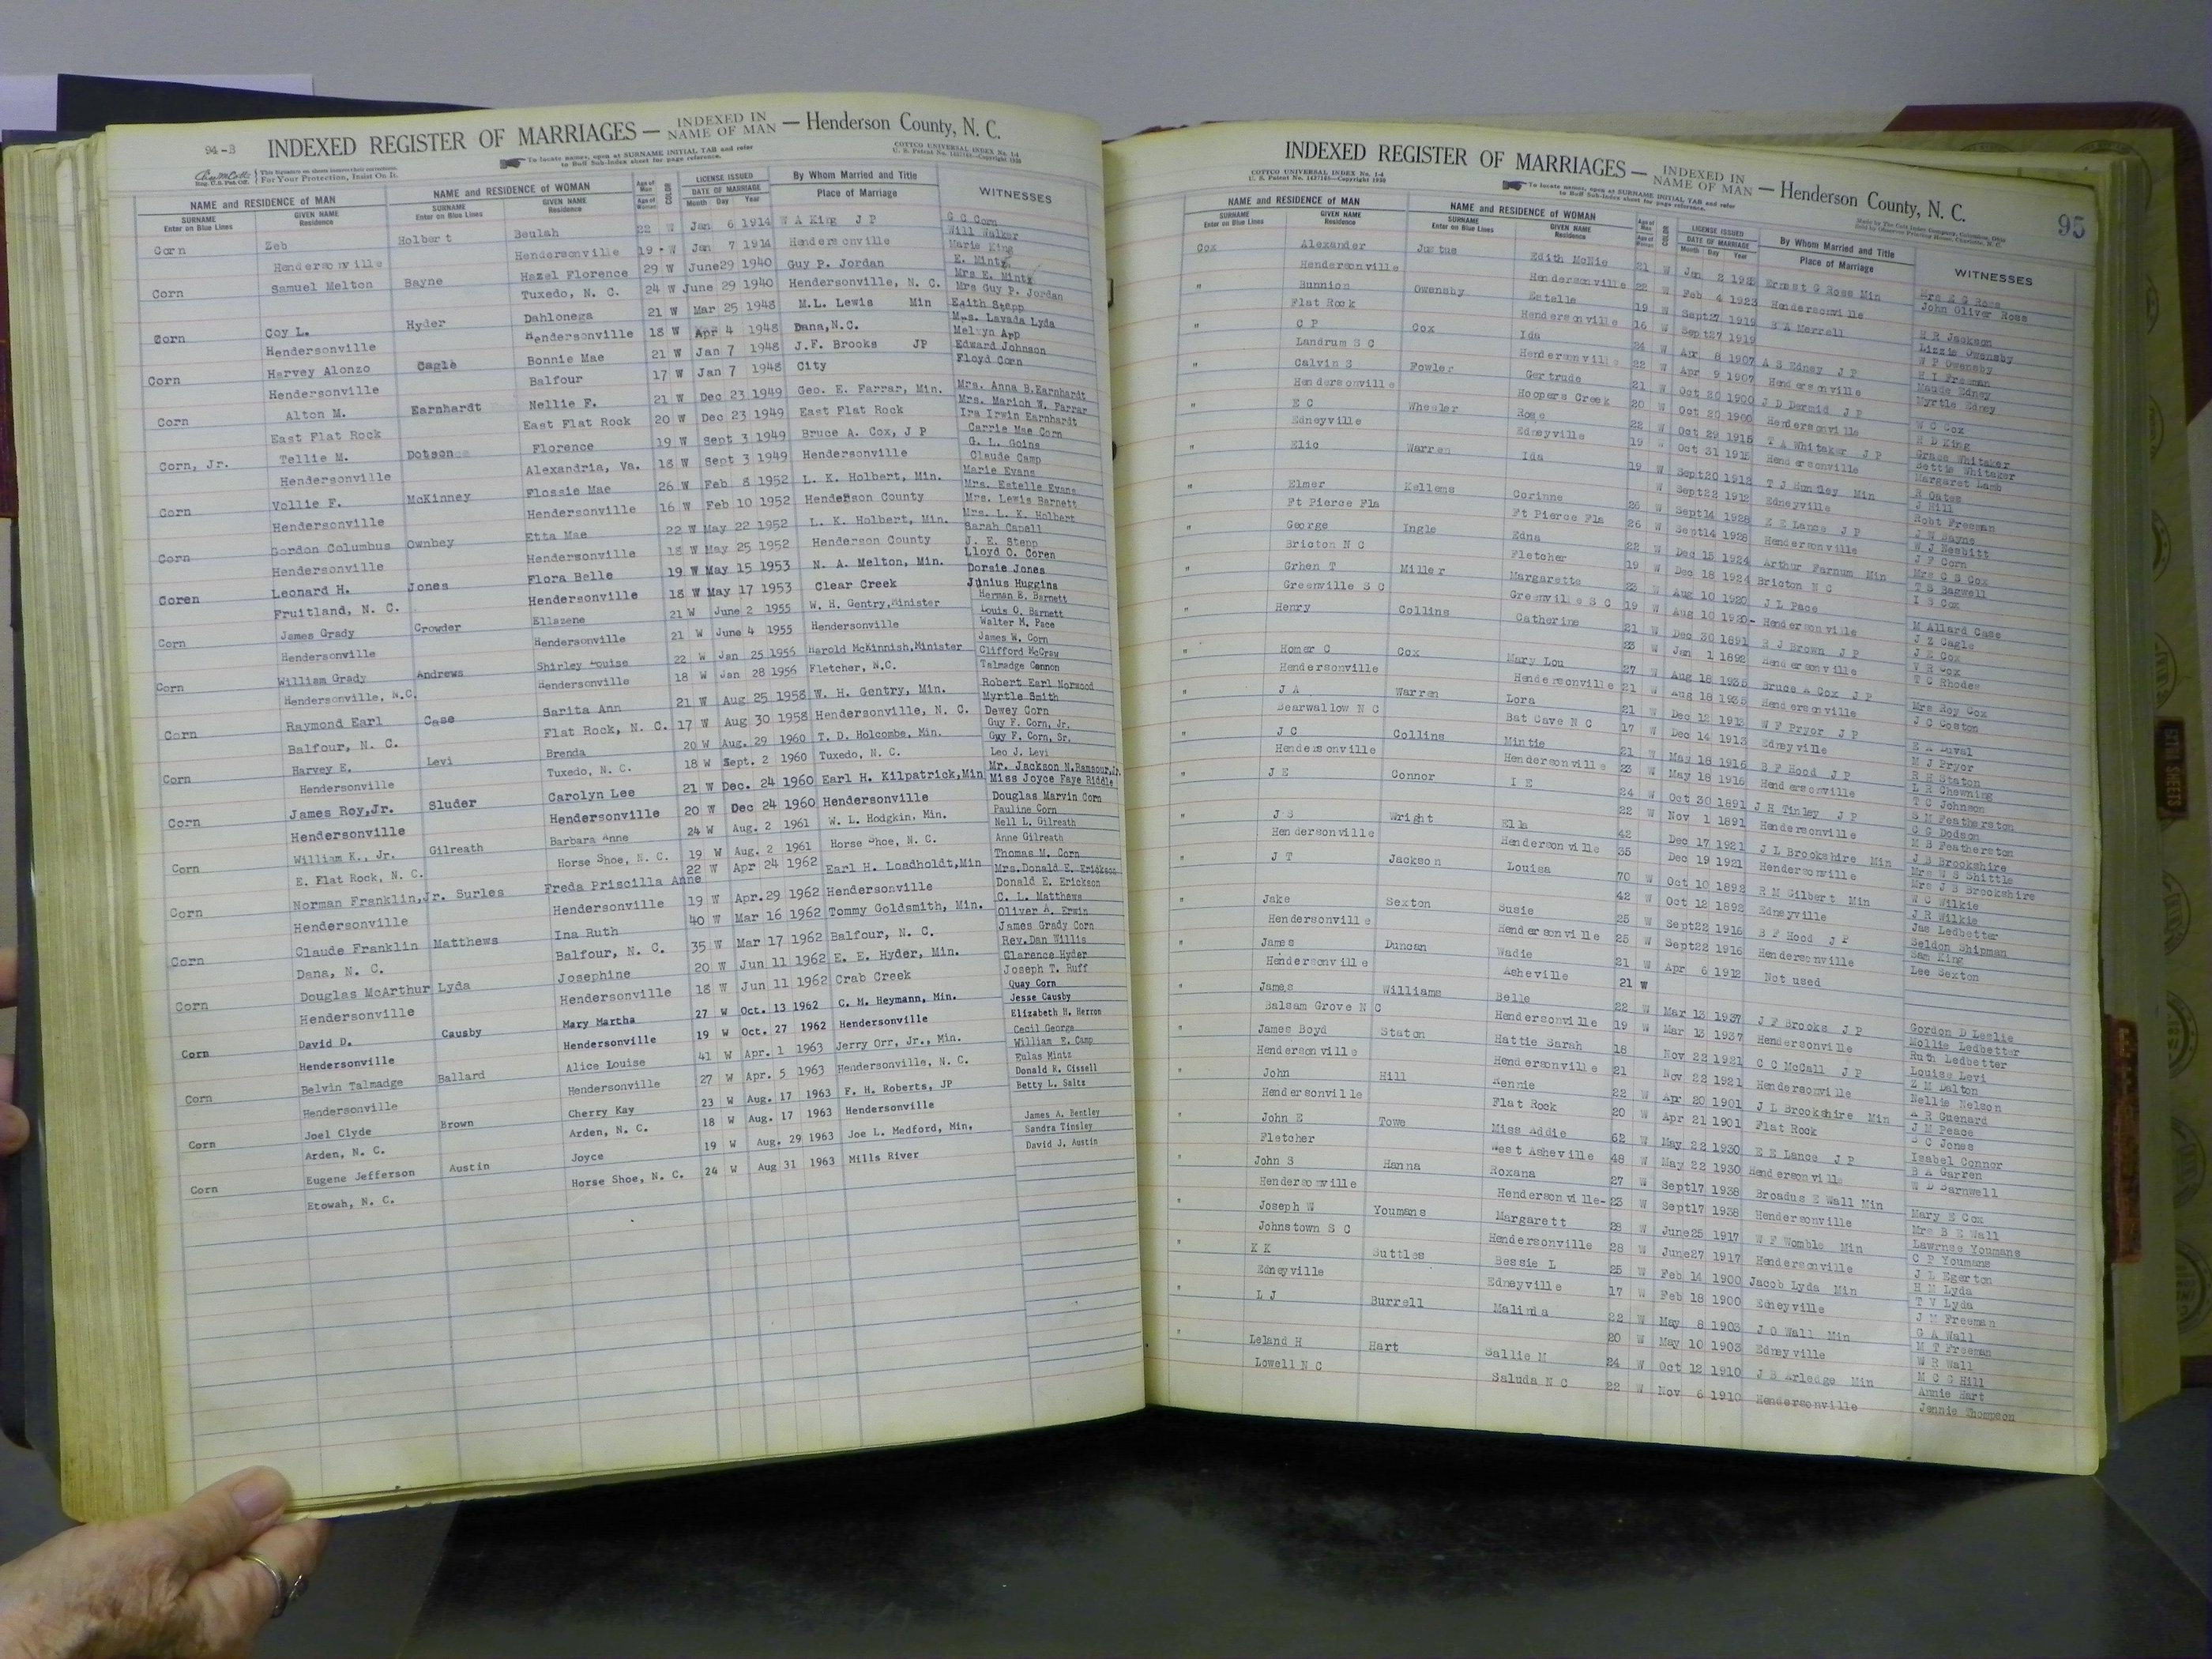 94-B INDEXED REGISTER OF MARRIAGES — INDEXED IN NAME OF MAN — Henderson County, N. C.
To locate names, open at SURNAME INITIAL TAB and refer to Buff Sub-Index sheet for page reference.
COTTCO UNIVERSAL INDEX No. 1-4
For Your Protection, Insist On It.
NAME and RESIDENCE of MAN NAME and RESIDENCE of WOMAN Age of Man Age of Woman COLOR LICENSE ISSUED DATE OF MARRIAGE By Whom Married and Title Place of Marriage WITNESSES
SURNAME Enter on Blue Lines GIVEN NAME Residence SURNAME Enter on Blue Lines GIVEN NAME Residence Month Day Year
Corn Zeb Holbert Beulah 22 W Jan 6 1914 W A King J P G C Corn
Will Walker
Hendersonville Hendersonville 19 W Jan 7 1914 Hendersonville Marie King
Corn Samuel Melton Bayne Hazel Florence 29 W June 29 1940 Guy P. Jordan E. Minty
Mrs E. Minty
Tuxedo, N. C. 24 W June 29 1940 Hendersonville, N. C. Mrs Guy P. Jordan
Corn Coy L. Hyder Dahlonega 21 W Mar 25 1948 M.L. Lewis Min Edith Stepp
Mrs. Lavada Lyda
Hendersonville Hendersonville 18 W Apr 4 1948 Dana,N.C. Melvyn App
Corn Harvey Alonzo Cagle Bonnie Mae 21 W Jan 7 1948 J.F. Brooks JP Edward Johnson
Hendersonville Balfour 17 W Jan 7 1948 City Floyd Corn
Corn Alton M. Earnhardt Nellie F. 21 W Dec 23 1949 Geo. E. Farrar, Min. Mrs. Anna B.Earnhardt
Mrs. Marion W. Farrar
East Flat Rock East Flat Rock 20 W Dec 23 1949 East Flat Rock Ira Irwin Earnhardt
Corn, Jr. Tellie M. Dotson Florence 19 W Sept 3 1949 Bruce A. Cox, J P Carrie Mae Corn
G. L. Goins
Hendersonville Alexandria, Va. 18 W Sept 3 1949 Hendersonville Claude Camp
Corn Vollie F. McKinney Flossie Mae 26 W Feb 8 1952 L. K. Holbert, Min. Marie Evans
Mrs. Estelle Evans
Hendersonville Hendersonville 16 W Feb 10 1952 Henderson County Mrs. Lewis Barnett
Corn Gordon Columbus Ownbey Etta Mae 22 W May 22 1952 L. K. Holbert, Min. Mrs. L. K. Holbert
Sarah Capell
Hendersonville Hendersonville 18 W May 25 1952 Henderson County J. E. Stepp
Coren Leonard H. Jones Flora Belle 19 W May 15 1953 N. A. Melton, Min. Lloyd O. Coren
Dorsie Jones
Fruitland, N. C. Hendersonville 18 W May 17 1953 Clear Creek Junius Huggins
Corn James Grady Crowder Ellazene 21 W June 2 1955 W. H. Gentry,Minister Herman E. Barnett
Louis O. Barnett
Hendersonville Hendersonville 21 W June 4 1955 Hendersonville Walter M. Pace
Corn William Grady Andrews Shirley Louise 22 W Jan 25 1956 Harold McKinnish,Minister James W. Corn
Clifford McCraw
Hendersonville, N.C. Hendersonville 18 W Jan 28 1956 Fletcher, N.C. Talmadge Cannon
Corn Raymond Earl Case Sarita Ann 21 W Aug 25 1958 W. H. Gentry, Min. Robert Earl Norwood
Myrtle Smith
Balfour, N. C. Flat Rock, N. C. 17 W Aug 30 1958 Hendersonville, N. C. Dewey Corn
Corn Harvey E. Levi Brenda 20 W Aug. 29 1960 T. D. Holcombe, Min. Guy F. Corn, Jr.
Guy F. Corn, Sr.
Hendersonville Tuxedo, N. C. 18 W Sept. 2 1960 Tuxedo, N. C. Leo J. Levi
Corn James Roy,Jr. Sluder Carolyn Lee 21 W Dec. 24 1960 Earl H. Kilpatrick,Min Mr. Jackson N.Ramsour,Jr.
Miss Joyce Faye Riddle
Hendersonville Hendersonville 20 W Dec 24 1960 Hendersonville Douglas Marvin Corn
Corn William K., Jr. Gilreath Barbara Anne 24 W Aug. 2 1961 W. L. Hodgkin, Min. Pauline Corn
Nell L. Gilreath
E. Flat Rock, N. C. Horse Shoe, N. C. 19 W Aug. 2 1961 Horse Shoe, N. C. Anne Gilreath
Corn Norman Franklin,Jr. Surles Freda Priscilla Anne 22 W Apr 24 1962 Earl H. Loadholdt,Min Thomas M. Corn
Mrs.Donald E. Erickson
Hendersonville Hendersonville 19 W Apr.29 1962 Hendersonville Donald E. Erickson
Corn Claude Franklin Matthews Ina Ruth 40 W Mar 16 1962 Tommy Goldsmith, Min. C. L. Matthews
Oliver A. Erwin
Dana, N. C. Balfour, N. C. 35 W Mar 17 1962 Balfour, N. C. James Grady Corn
Corn Douglas McArthur Lyda Josephine 20 W Jun 11 1962 E. E. Hyder, Min. Rev.Dan Willis
Clarence Hyder
Hendersonville Hendersonville 18 W Jun 11 1962 Crab Creek Joseph T. Ruff
Corn David D. Causby Mary Martha 27 W Oct. 13 1962 C. M. Heymann, Min. Quay Corn
Jesse Causby
Hendersonville Hendersonville 19 W Oct. 27 1962 Hendersonville Elizabeth H. Herron
Corn Belvin Talmadge Ballard Alice Louise 41 W Apr. 1 1963 Jerry Orr, Jr., Min. Cecil George
William E. Camp
Hendersonville Hendersonville 27 W Apr. 5 1963 Hendersonville, N. C. Eulas Mintz
Corn Joel Clyde Brown Cherry Kay 23 W Aug. 17 1963 F. H. Roberts, JP Donald R. Cissell
Betty L. Saltz
Arden, N. C. Arden, N. C. 18 W Aug. 17 1963 Hendersonville
Corn Eugene Jefferson Austin Joyce 19 W Aug. 29 1963 Joe L. Medford, Min. James A. Bentley
Sandra Tinsley
Etowah, N. C. Horse Shoe, N. C. 24 W Aug 31 1963 Mills River David J. Austin
INDEXED REGISTER OF MARRIAGES — INDEXED IN NAME OF MAN — Henderson County, N. C. 95
COTTCO UNIVERSAL INDEX No. 1-4
To locate names, open at SURNAME INITIAL TAB and refer to Buff Sub-Index sheet for page reference.
NAME and RESIDENCE of MAN NAME and RESIDENCE of WOMAN Age of Man Age of Woman COLOR LICENSE ISSUED DATE OF MARRIAGE By Whom Married and Title Place of Marriage WITNESSES
SURNAME Enter on Blue Lines GIVEN NAME Residence SURNAME Enter on Blue Lines GIVEN NAME Residence Month Day Year
Cox Alexander Justus Edith McNie 21 W Jan 2 Ernest G Ross Min Mrs E G Ross
John Oliver Ross
Hendersonville Hendersonville 22 W Feb 4 1923 Hendersonville
" Bunnion Owensby Estelle 19 W Sept27 1919 B A Merrell H R Jackson
Lizzie Owensby
Flat Rock Hendersonville 16 W Sept27 1919 W P Owensby
" C P Cox Ida 24 W Apr 8 1907 A S Edney J P H I Freeman
Maude Edney
Landrum S C Hendersonville 22 W Apr 9 1907 Hendersonville Myrtle Edney
" Calvin S Fowler Gertrude 21 W Oct 20 1900 J D Dermid J P W C Cox
Hendersonville Hoopers Creek 20 W Oct 20 1900 Hendersonville H D King
" E C Wheeler Rose 22 W Oct 29 1915 T A Whitaker J P Grace Whitaker
Bettie Whitaker
Edneyville Edneyville 19 Oct 31 1915 Hendersonville Margaret Lamb
" Elic Warren Ida 19 W Sept20 1912 T J Huntley Min R Oates
J Hill
W Sept22 1912 Edneyville Robt Freeman
" Elmer Kellems Corinne 26 W Sept14 1928 E E Lance J P J W Bayne
W J Nesbitt
Ft Pierce Fla Ft Pierce Fla 26 W Sept14 1928 Hendersonville J F Corn
" George Ingle Edna 22 W Dec 15 1924 Arthur Farnum Min Mrs C S Cox
T S Bagwell
Bricton N C Fletcher 19 W Dec 18 1924 Bricton N C I S Cox
" Grhen T Miller Margarette 23 W Aug 10 1920 J L Pace M Allard Case
Greenville S C Greenville S C 19 W Aug 10 1920 Hendersonville J Z Cagle
" Henry Collins Catherine 21 W Dec 30 1891 R J Brown J P J E Cox
V R Cox
23 W Jan 1 1892 Hendersonville T C Rhodes
" Homer C Cox Mary Lou 27 W Aug 18 1935 Bruce A Cox J P Mrs Roy Cox
Hendersonville Hendersonville 21 W Aug 18 1935 Hendersonville J C Coston
" J A Warren Lora 21 W Dec 12 1913 W F Pryor J P E A Duval
Bearwallow N C Bat Cave N C 17 W Dec 14 1913 Edneyville M J Pryor
" J C Collins Mintie 21 W May 18 1916 B F Hood J P R H Staton
L R Chewning
Hendersonville Hendersonville 23 W May 18 1916 Hendersonville T C Johnson
" J E Connor I E 24 W Oct 30 1891 J H Tinley J P S M Featherston
C G Dodson
22 W Nov 1 1891 Hendersonville M B Featherston
" J S Wright Ella 42 Dec 17 1921 J L Brookshire Min J B Brookshire
Mrs W S Shittle
Hendersonville Hendersonville 35 Dec 19 1921 Hendersonville Mrs J B Brookshire
" J T Jackson Louisa 70 W Oct 10 1892 R M Gilbert Min W C Wilkie
J R Wilkie
42 W Oct 12 1892 Edneyville Jas Ledbetter
" Jake Sexton Susie 25 W Sept22 1916 B F Hood J P Seldon Shipman
Sam King
Hendersonville Hendersonville 25 W Sept22 1916 Hendersonville Lee Sexton
" James Duncan Wadie 21 W Apr 6 1912 Not used
Hendersonville Asheville 21 W
" James Williams Belle 22 W Mar 13 1937 J F Brooks J P Gordon D Leslie
Mollie Ledbetter
Balsam Grove N C Hendersonville 19 W Mar 13 1937 Hendersonville Ruth Ledbetter
" James Boyd Staton Hattie Sarah 18 Nov 22 1921 C C McCall J P Louise Levi
Z M Dalton
Hendersonville Hendersonville 21 Nov 22 1921 Hendersonville Nellie Nelson
" John Hill Bennie 22 W Apr 20 1901 J L Brookshire Min A R Guenard
J M Peace
Hendersonville Flat Rock 20 W Apr 21 1901 Flat Rock B C Jones
" John E Towe Miss Addie 62 W May 22 1930 E E Lance J P Isabel Connor
B A Garren
Fletcher West Asheville 48 W May 22 1930 Hendersonville W D Barnwell
" John S Hanna Roxana 27 W Sept17 1938 Broadus E Wall Min Mary E Cox
Hendersonville Hendersonville 23 W Sept17 1938 Hendersonville Mrs B E Wall
" Joseph W Youmans Margarett 28 W June25 1917 W F Womble Min Lawrnse Youmans
C P Youmans
Johnstown S C Hendersonville 28 W June27 1917 Hendersonville J L Egerton
" K K Suttles Bessie L 25 W Feb 14 1900 Jacob Lyda Min H M Lyda
T V Lyda
Edneyville Edneyville 17 W Feb 18 1900 Edneyville J M Freeman
" L J Burrell Malinda 22 W May 8 1903 J O Wall Min G A Wall
M T Freeman
20 W May 10 1903 Edneyville W R Wall
" Leland H Hart Sallie M 24 W Oct 12 1910 J B Arledge Min M C G Hill
Annie Hart
Lowell N C Saluda N C 22 W Nov 6 1910 Hendersonville Jennie Thompson